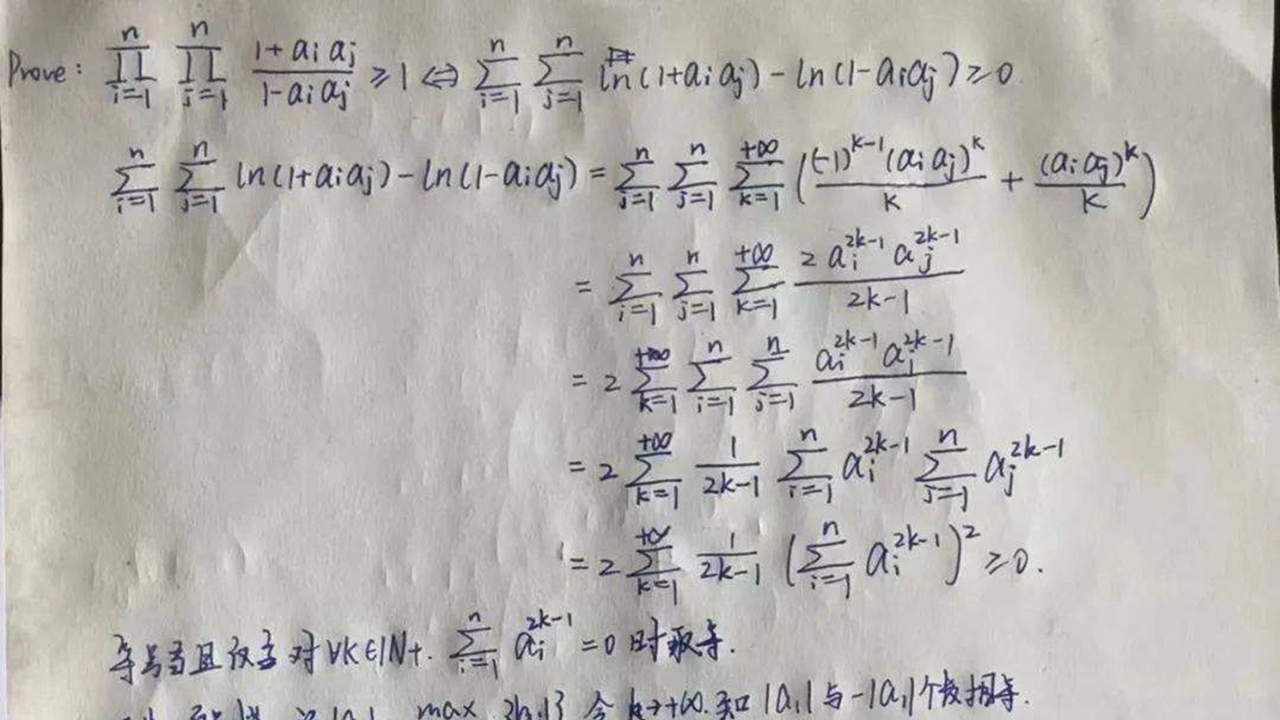 Prove: ∏_{i=1}^{n} ∏_{j=1}^{n} (1+a_i a_j)/(1-a_i a_j) ≥ 1 ⇔ ∑_{i=1}^{n} ∑_{j=1}^{n} ln(1+a_i a_j) - ln(1-a_i a_j) ≥ 0
∑_{i=1}^{n} ∑_{j=1}^{n} ln(1+a_i a_j) - ln(1-a_i a_j) = ∑_{i=1}^{n} ∑_{j=1}^{n} ∑_{k=1}^{+∞} ( (-1)^{k-1} (a_i a_j)^k / k + (a_i a_j)^k / k )
= ∑_{i=1}^{n} ∑_{j=1}^{n} ∑_{k=1}^{+∞} 2 a_i^{2k-1} a_j^{2k-1} / (2k-1)
= 2 ∑_{k=1}^{+∞} ∑_{i=1}^{n} ∑_{j=1}^{n} a_i^{2k-1} a_j^{2k-1} / (2k-1)
= 2 ∑_{k=1}^{+∞} 1/(2k-1) ∑_{i=1}^{n} a_i^{2k-1} ∑_{j=1}^{n} a_j^{2k-1}
= 2 ∑_{k=1}^{+∞} 1/(2k-1) ( ∑_{i=1}^{n} a_i^{2k-1} )^2 ≥ 0.
等号当且仅当对 ∀k∈ℕ+. ∑_{i=1}^{n} a_i^{2k-1} = 0 时取等.
max 令 k→+∞. 知 |a_1| 与 -|a_1| 个数相等.